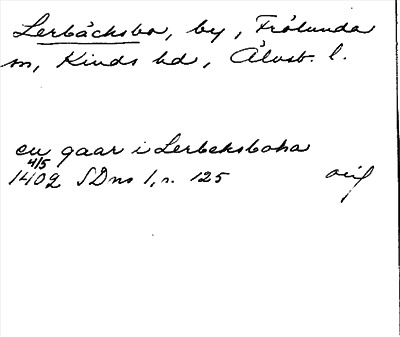 Lerbäcksbo, by, Frölunda
sn, Kinds hd, Älvsb. l.
en gaar i Lerbeksboha
4/5
1402 SDns 1, s. 125 orig